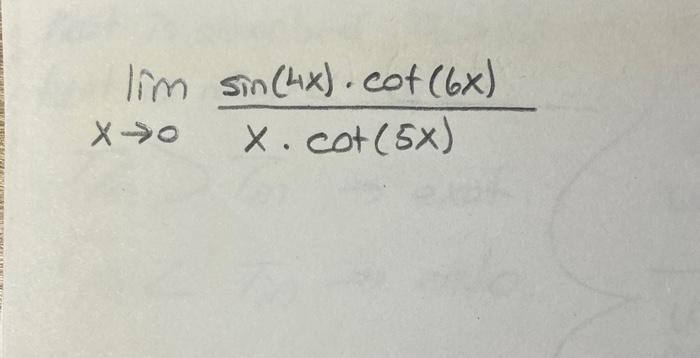 lim sin(4x) · cot(6x)
x→0 x · cot(5x)